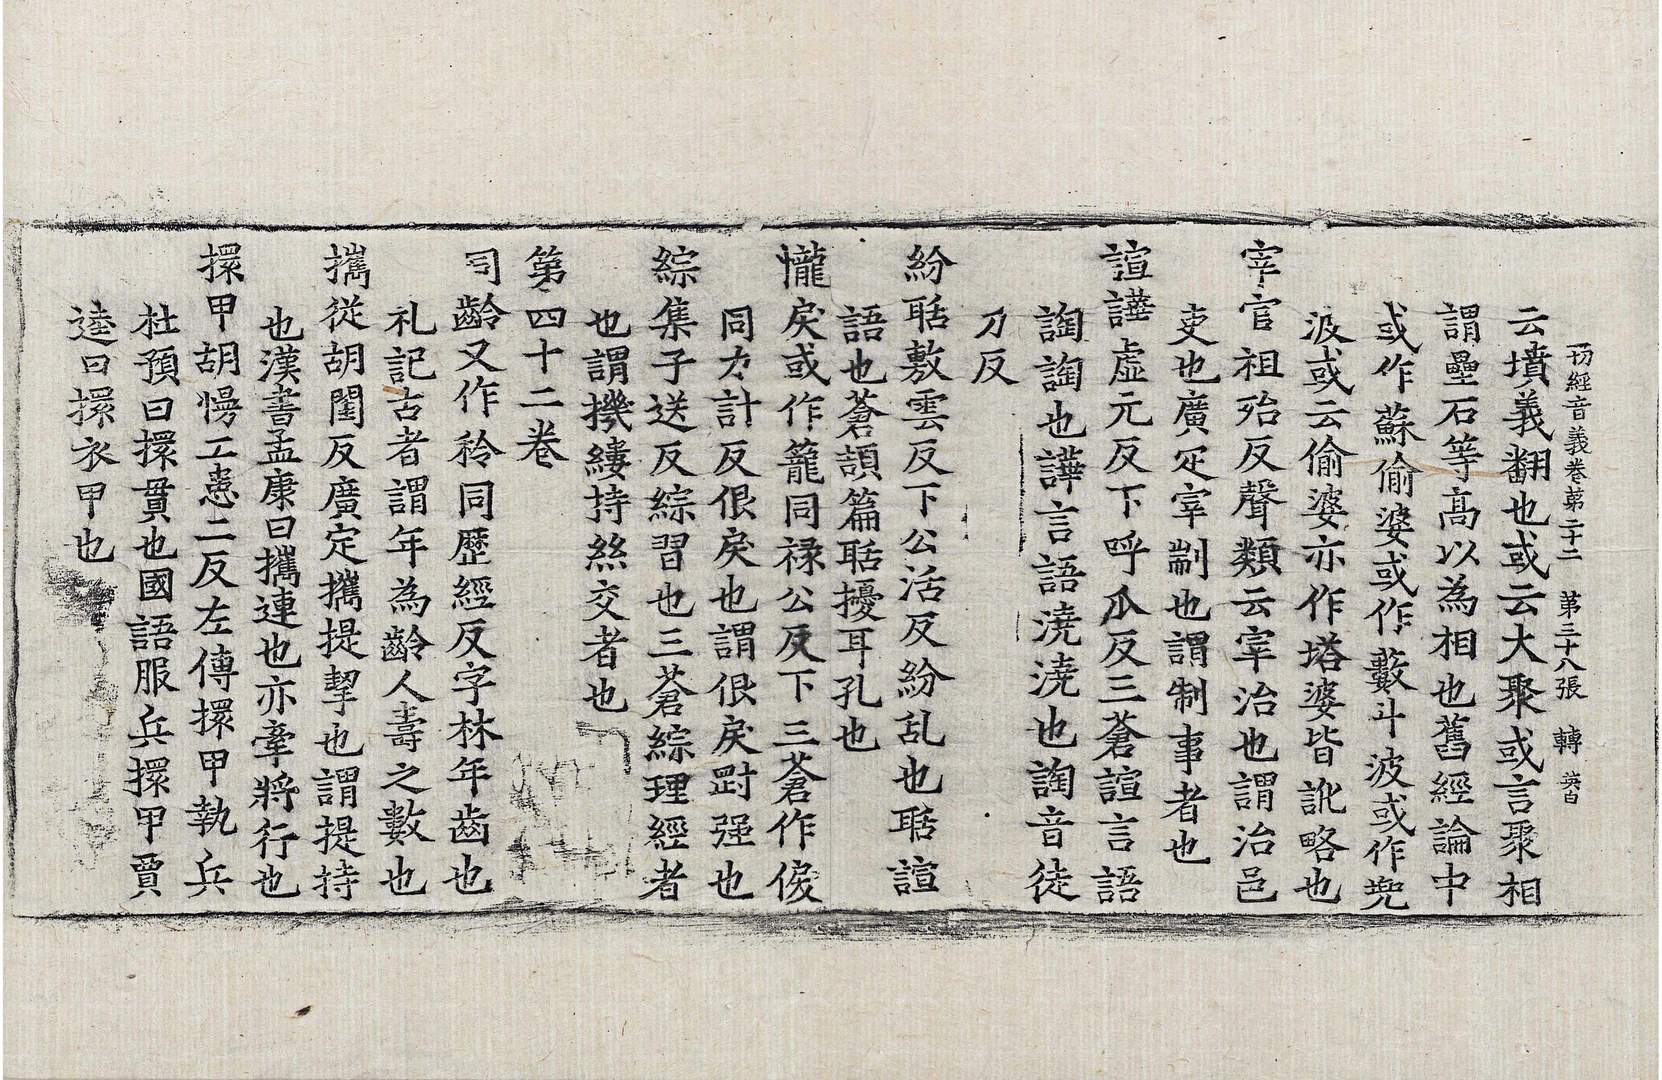 一切經音義卷苐二十二 第三十八張 轉 英白
云墳義翻也或云大聚或言聚相
謂壘石等高以為相也舊經論中
或作蘇偷婆或作藪斗波或作兠
波或云偷婆亦作塔婆皆訛略也
宰官祖殆反聲類云宰治也謂治邑
吏也廣疋宰制也謂制事者也
諠譁虛元反下呼瓜反三蒼諠言語
譊譊也譁言語澆澆也譊音徒
刀反
紛聒敷雲反下公活反紛乱也聒諠
語也蒼頡篇聒擾耳孔也
𢤱戾或作籠同禄公反下三蒼作俊
同力計反佷戾也謂佷戾㘝強也
綜集子送反綜習也三蒼綜理經者
也謂機縷持絲交者也
第四十二卷
司齡又作秢同歷經反字林年齒也
礼記古者謂年為齡人壽之數也
攜從胡閨反廣疋攜提挈也謂提持
也漢書孟康曰攜連也亦牽將行也
擐甲胡慢工患二反左傳擐甲執兵
杜預曰擐貫也國語服兵擐甲賈
逵曰擐衣甲也